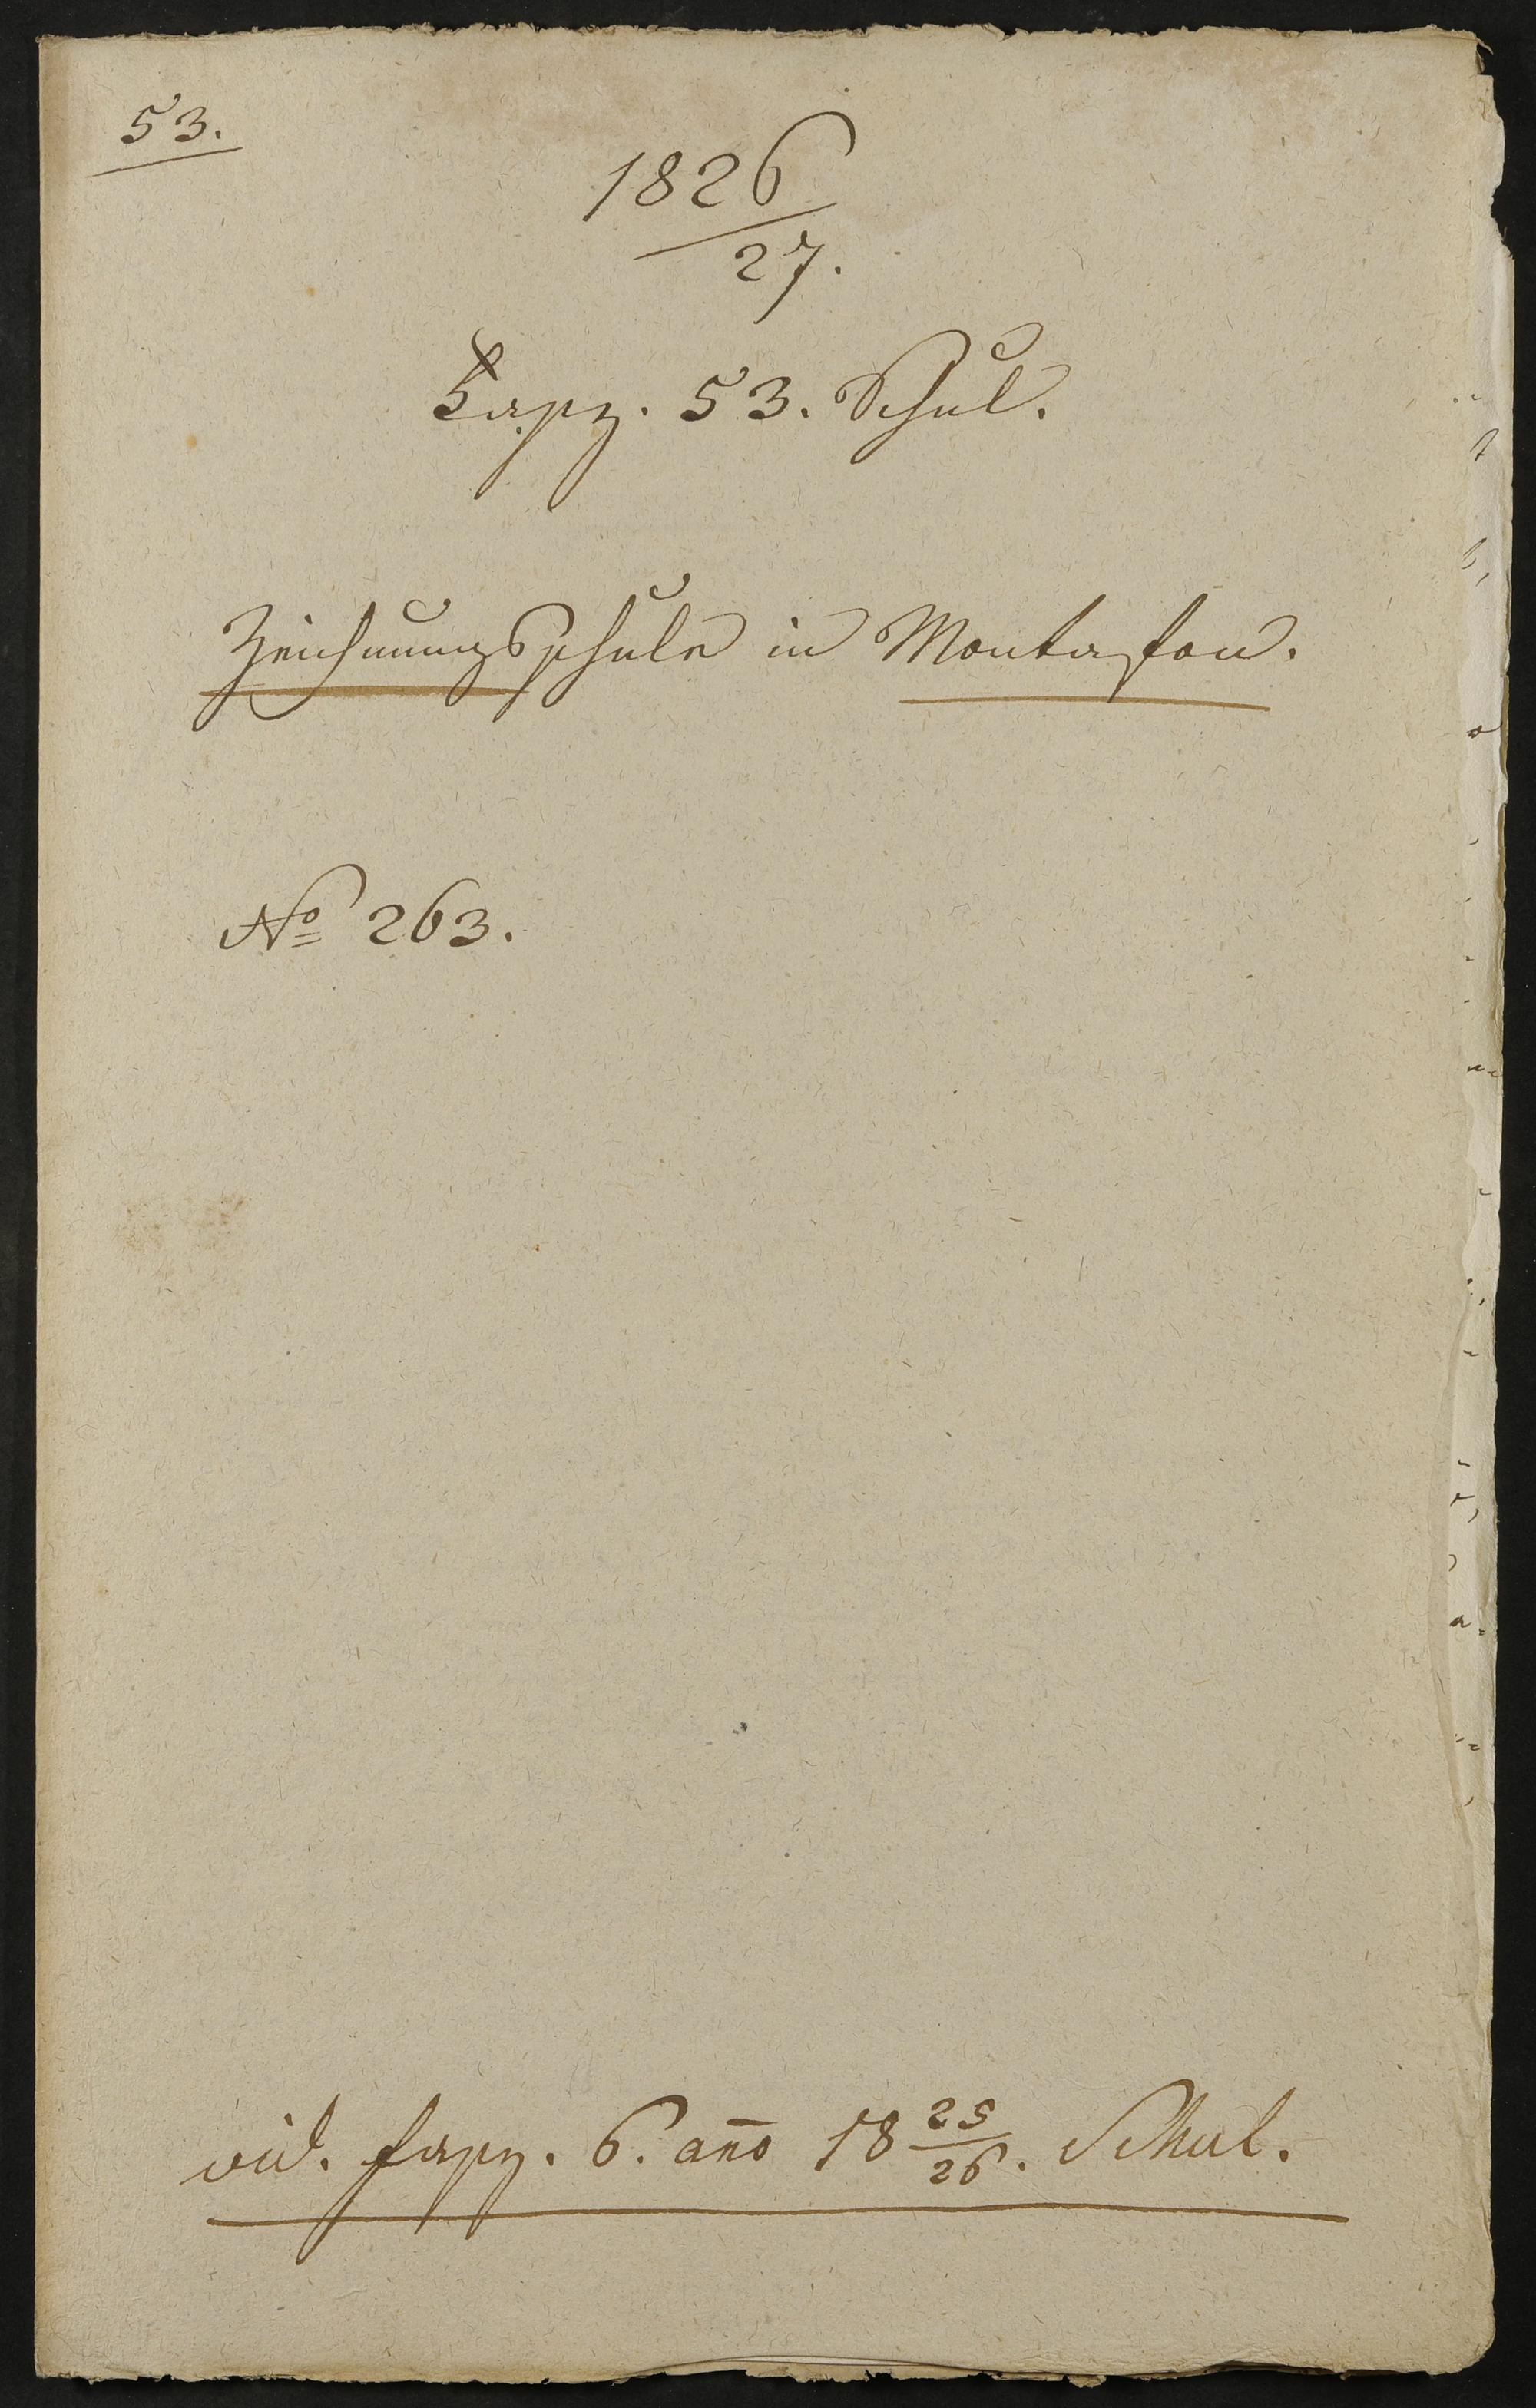 53.
1826/27.
Fasz. 53. Schul.
Zeichnungsschule in Montafon.
No 263.
vid. fasz. 6. ano 18 25/26. Schul.